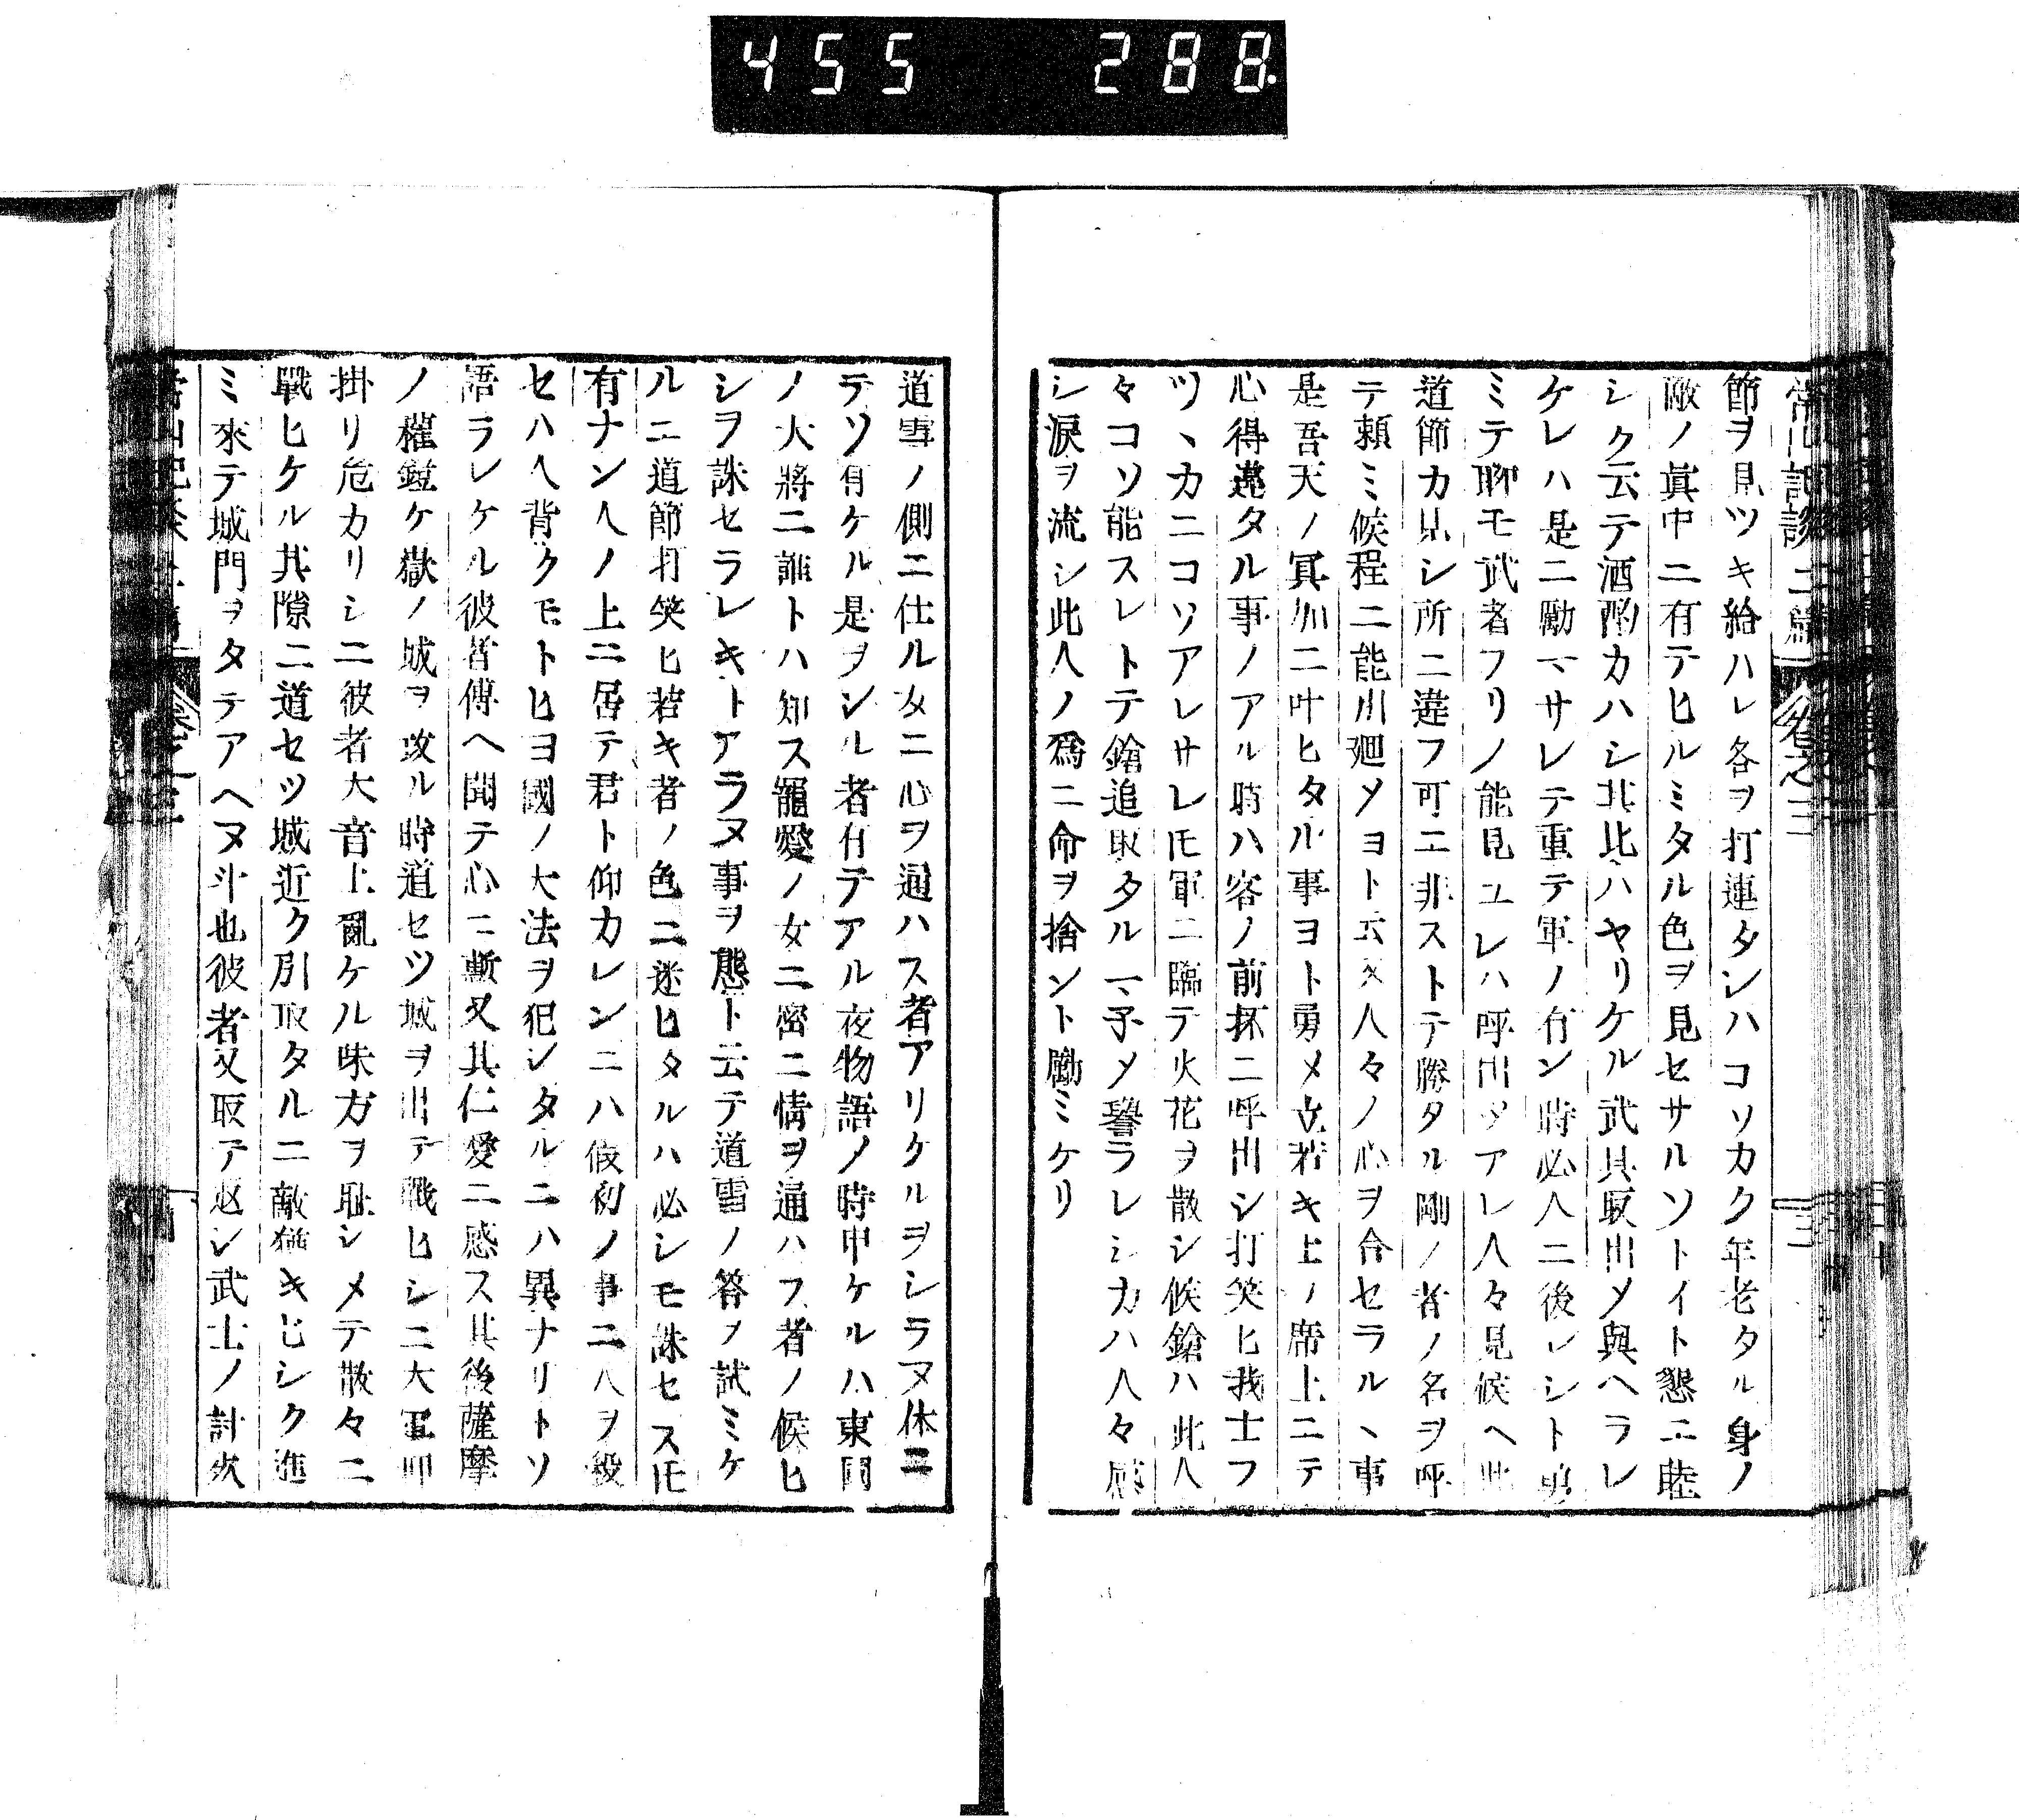 455 288.
常山記談 卷之三
節ヲ見ツキ給ハレ各ヲ打連タレハコソカク年老タル身ノ
敵ノ眞中ニ有テヒルミタル色ヲ見セサルソトイト懇ニ睦
シク云テ酒酌カハシ其比ハヤリケル武具取出メ與ヘラレ
ケレハ是ニ勵マサレテ重テ軍ノ有ン時必人ニ後レシト勇
ミテ聊モ武者フリノ能見ユレハ呼出メアレ人々見候ヘ此
道節カ見シ所ニ違フ可ニ非ストテ勝タル剛ノ者ノ名ヲ呼
テ頼ミ候程ニ能川廻メヨト云又人々ノ心ヲ合セラルヽ事
是吾天ノ冥加ニ叶ヒタル事ヨト勇メ立若キ士ノ席上ニテ
心得違タル事ノアル時ハ客ノ前抔ニ呼出シ打笑ヒ我士フ
ツヽカニコソアレサレ𪜈軍ニ臨テ火花ヲ散シ候鎗ハ此人
々コソ能スレトテ鎗追取タルマ子メ譽ラレシカハ人々感
シ涙ヲ流シ此人ノ爲ニ命ヲ捨ント勵ミケリ
道雪ノ側ニ仕ル女ニ心ヲ通ハス者アリケルヲシラヌ休ニ
テソ有ケル是ヲシル者有テアル夜物語ノ時申ケルハ東國
ノ大將ニ誰トハ知ス寵愛ノ女ニ密ニ情ヲ通ハフ者ノ候ヒ
シヲ誅セラレキトアラヌ事ヲ態ト云テ道雪ノ答ヲ試ミケ
ルニ道節打笑ヒ若キ者ノ色ニ迷ヒタルハ必シモ誅セス𪜈
有ナン人ノ上ニ居テ君ト仰カレンニハ假初ノ事ニ人ヲ殺
セハ人背クモトヒヨ國ノ大法ヲ犯シタルニハ異ナリトソ
語ラレケル彼者傳ヘ聞テ心ニ慚又其仁愛ニ感ス其後薩摩
ノ權鐙ケ嶽ノ城ヲ攻ル時道セツ城ヲ出テ戰ヒシニ大軍叩
掛リ危カリシニ彼者大音上亂ケル味方ヲ恥シメテ散々ニ
戰ヒケル其隙ニ道セツ城近ク引取タルニ敵猶キヒシク進
ミ來テ城門ヲタテアヘヌ斗也彼者又取ア返シ武士ノ討死